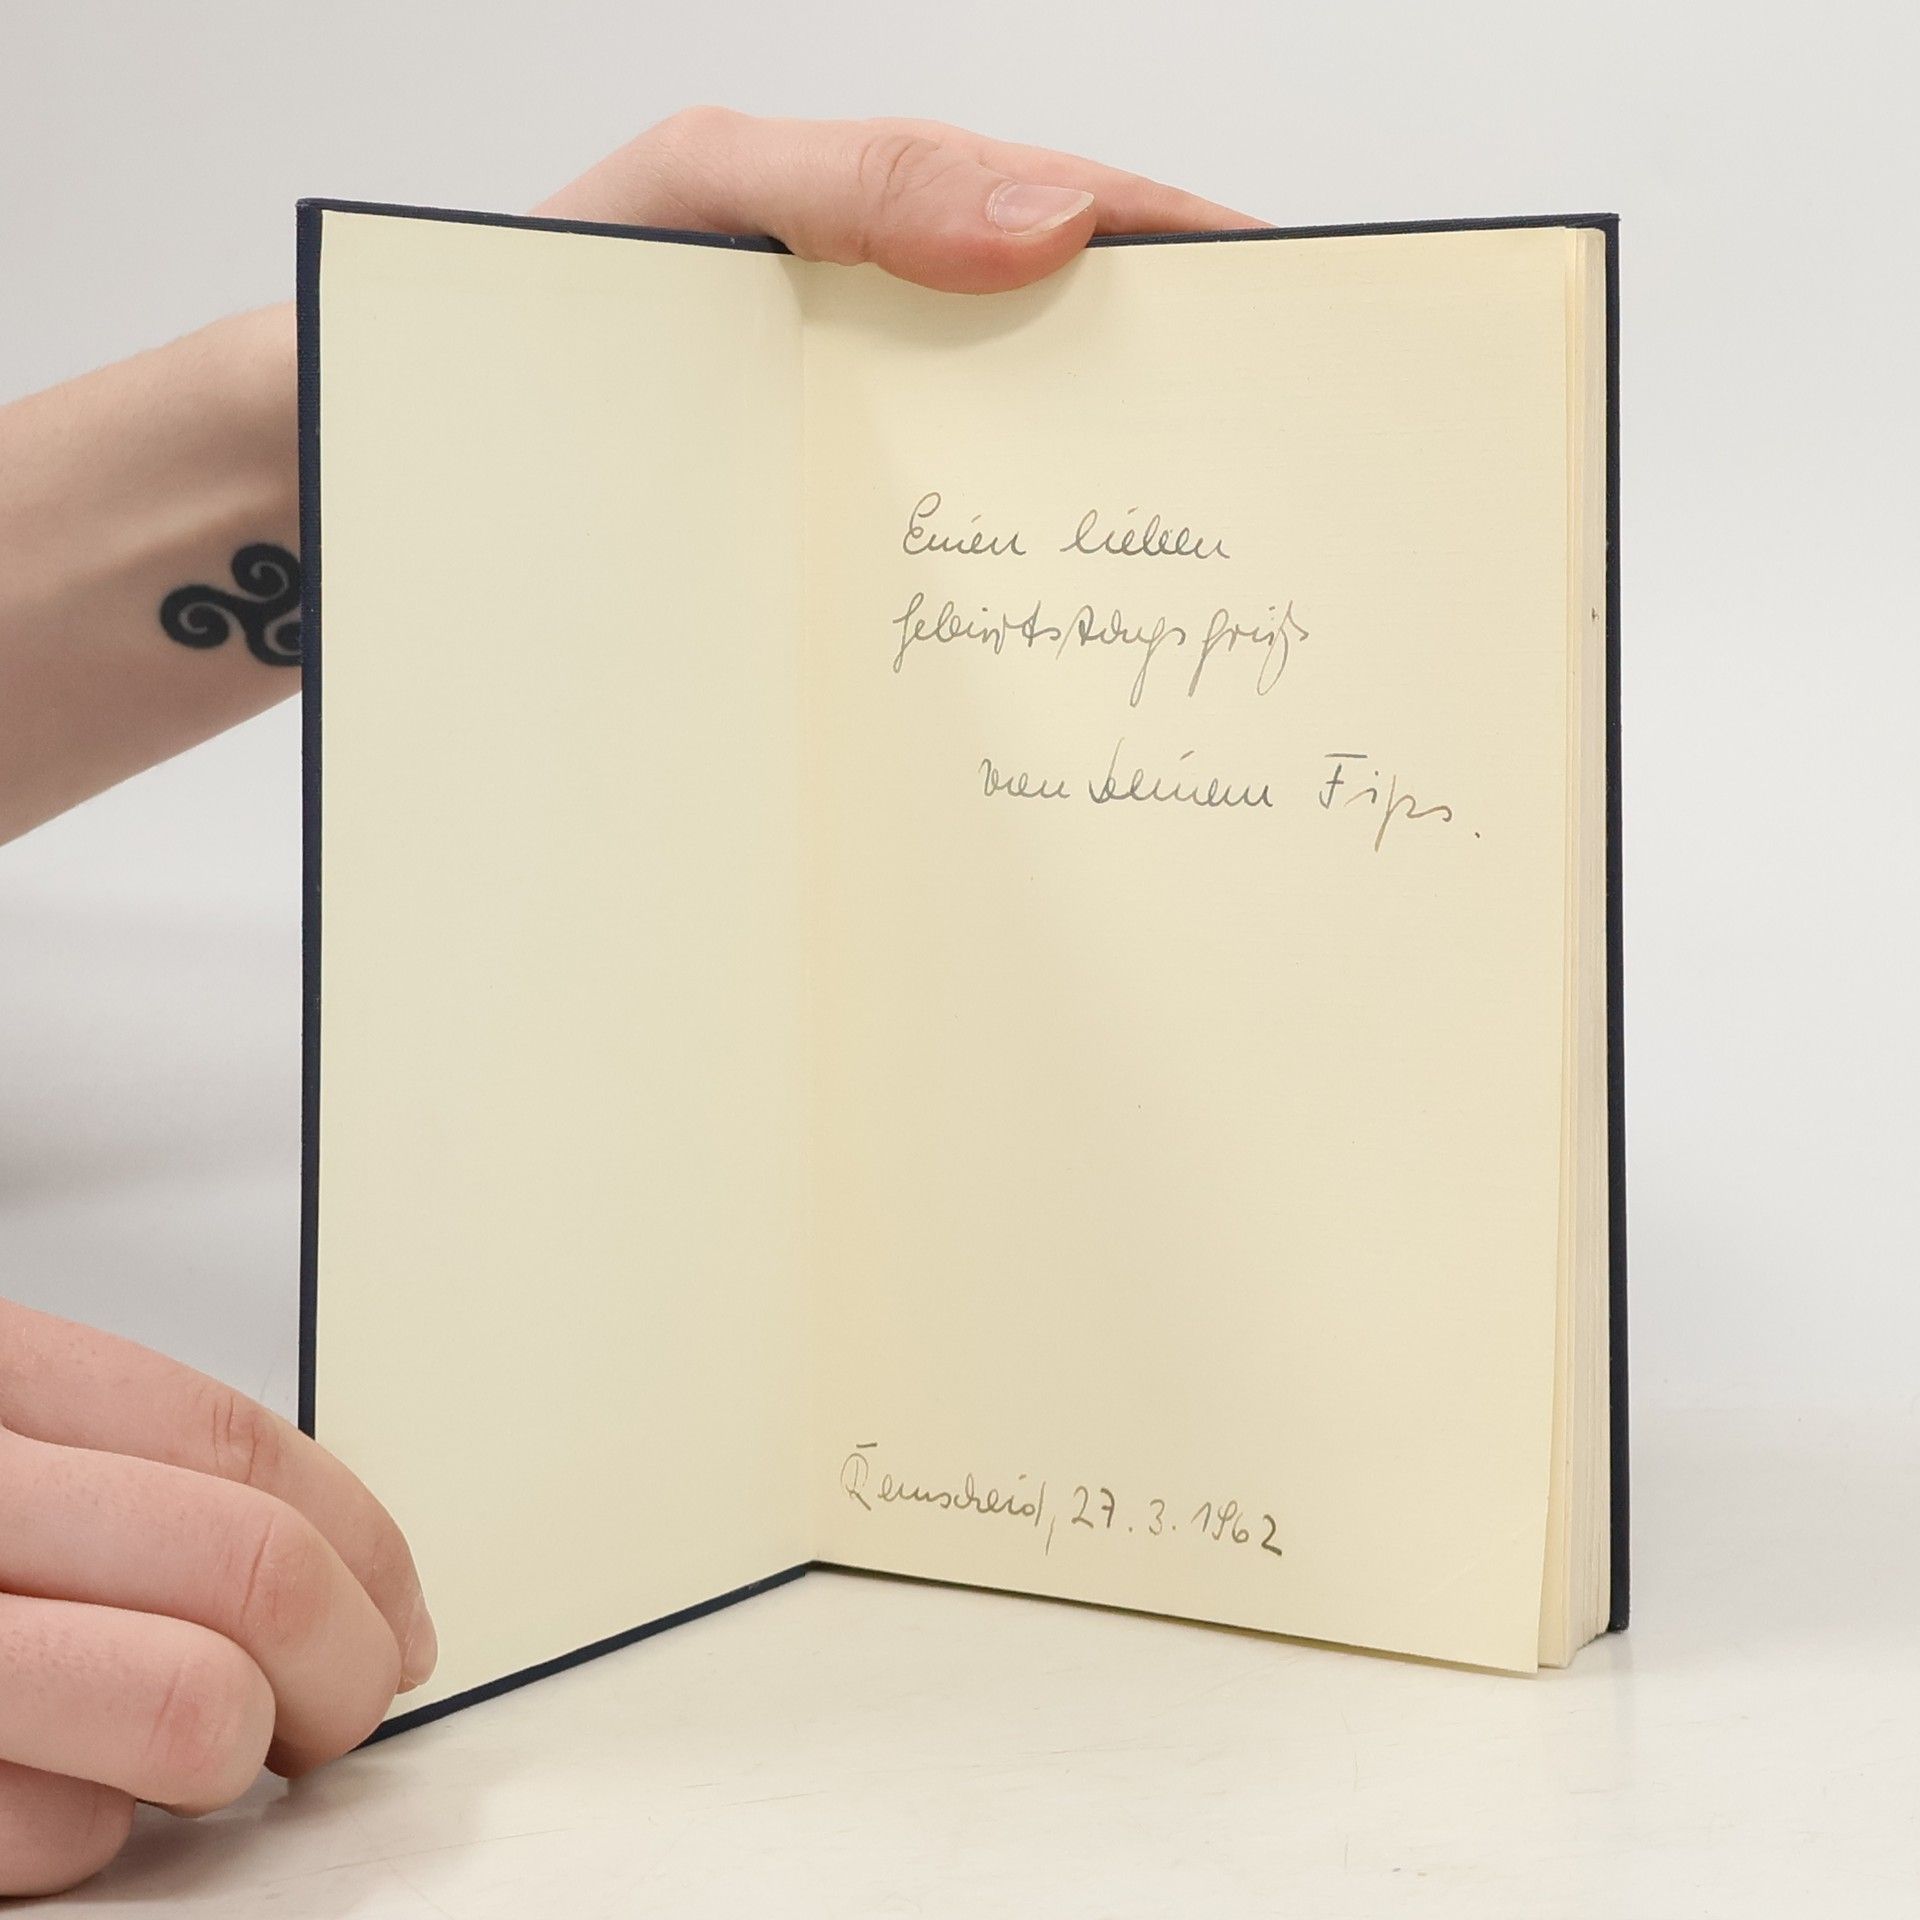 Einen lieben
Geburtstagsgruß
von Deinem Fips.
Remscheid, 27.3.1962